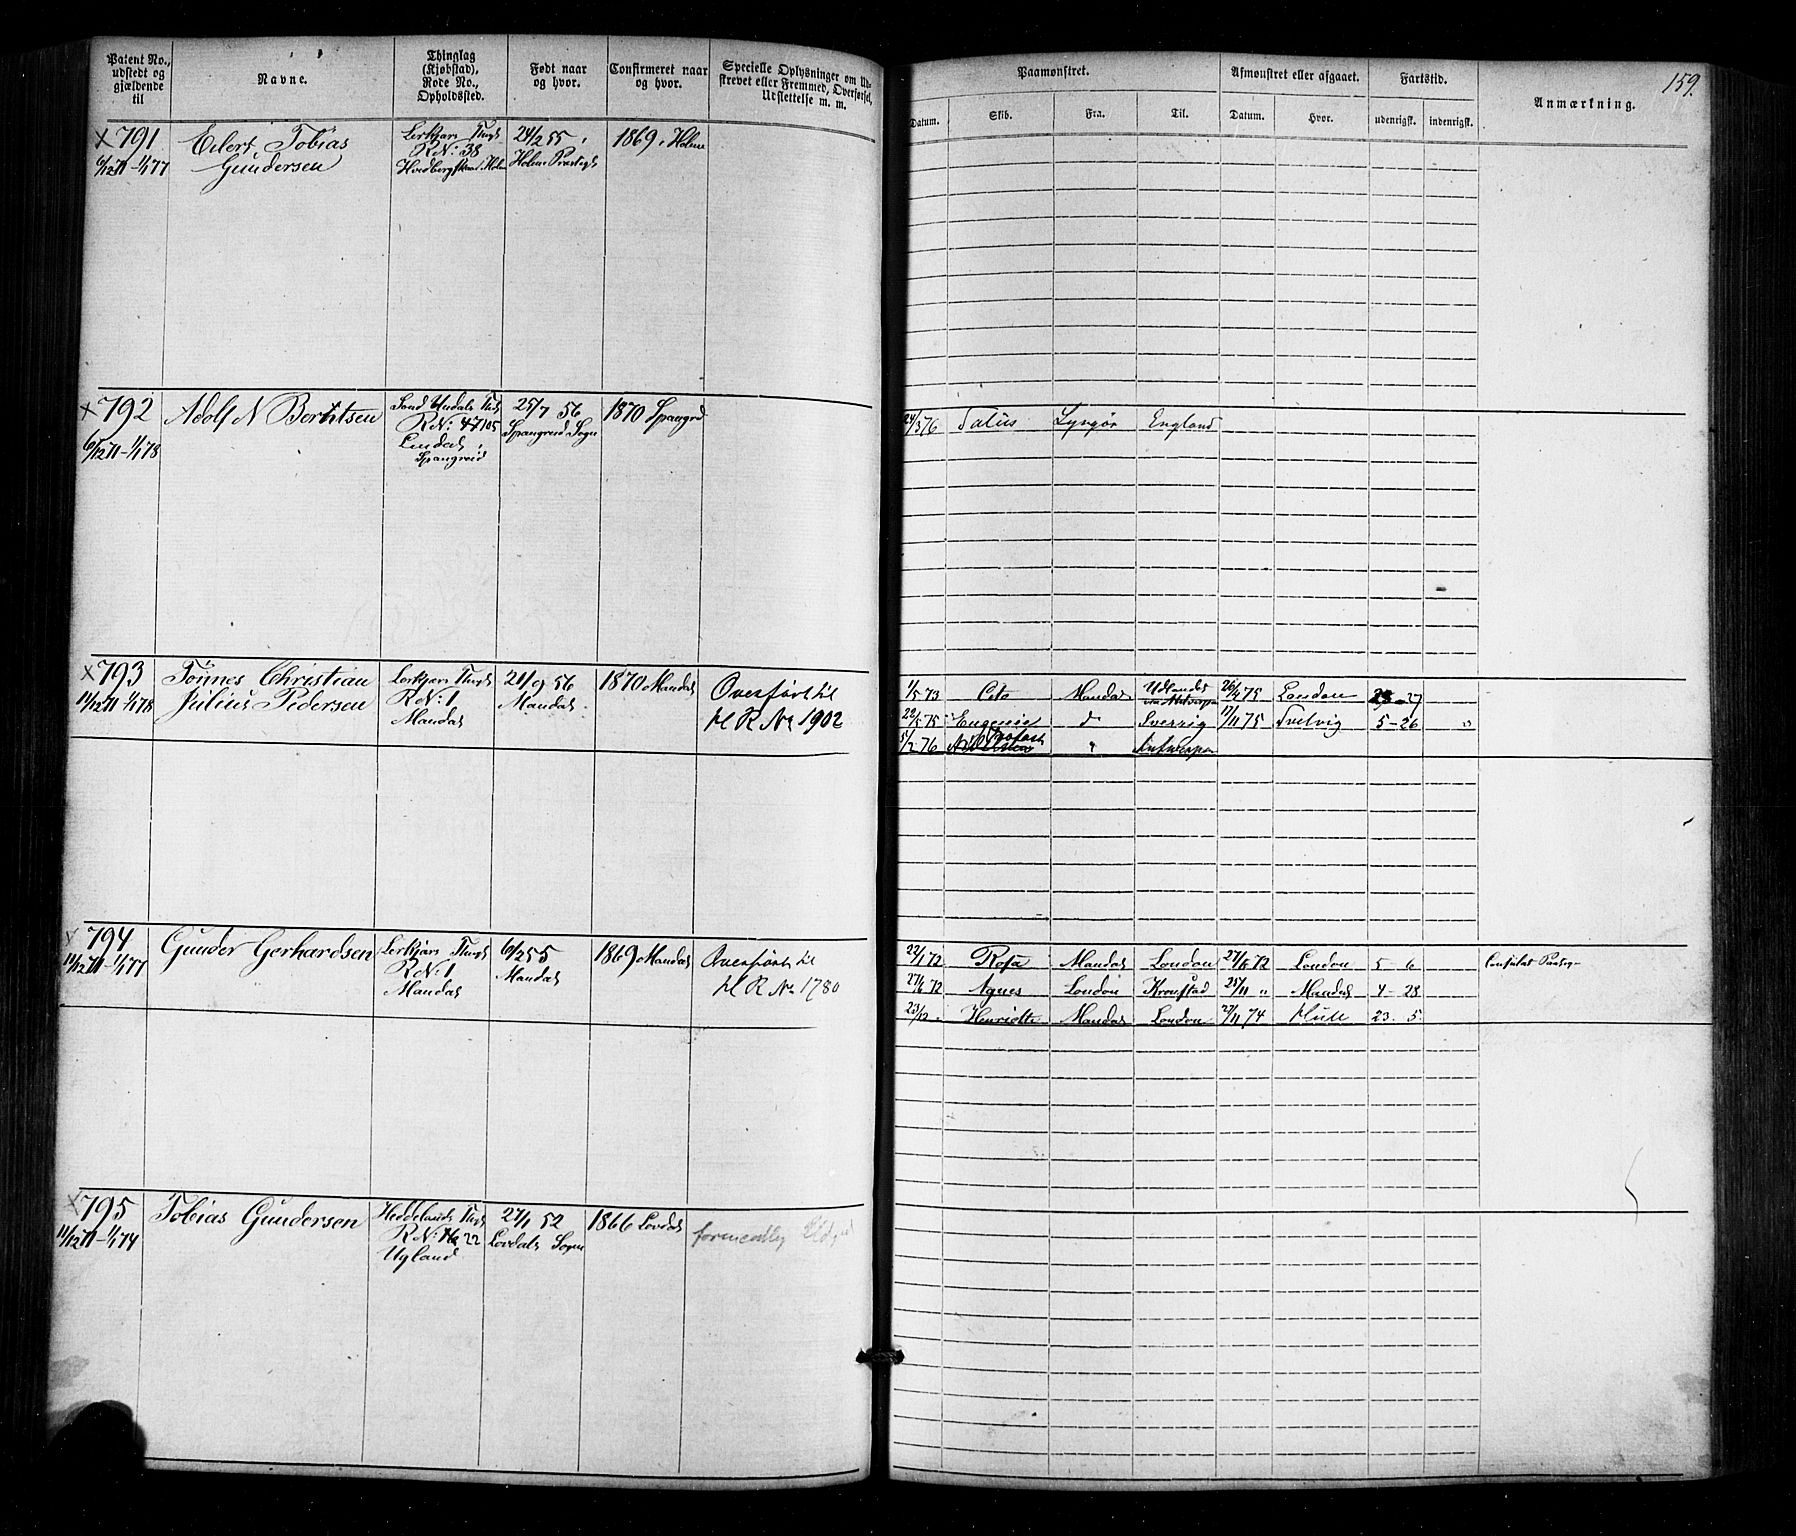 Patent No., udstedt og gjældende til
Navne.
Thinglag (Kjøbstad), Rode No., Opholdssted.
Født naar og hvor.
Confirmeret naar og hvor.
Specielle Oplysninger om Udskrevet eller Fremmed, Overførsel, Udslettelse m. m.
Paamønstret.
Afmønstret eller afgaaet.
Fartstid.
Anmærkning.
159.
Datum.
Skib.
Fra.
Til.
Datum.
Hvor.
udenrigsk.
indenrigsk.
x 791
6/12 71 - 1/1 77
Eilert Tobias
Gundersen
R N: 38
24/2 55 i
Holme Præstegd
1869 i Holme
x 792
6/12 71 - 1/1 78
Adolf N Berntsen
Sønd Undals Thgl
R N: 47 105
Lindal i
Spangreid
25/7 56
Spangreid Sogn
1870 Spangrd
24/3 76 Lyngør England
x 793
11/12 71 1/1 78
Tönnes Christian
Julius Pedersen
R N: 1
Mandal
21/9 56
Mandal
1870 Mandal
Overført til
H R No 1902
1/5 73 Mandal Udlandet via Antwerpen 26/4 75 London 23-27
22/5 75 Eugenie do Sverrig 17/11 75 5-26
5/2 76 " Antwerpen
x 794
11/12 71 - 1/1 77
Gunder Gerhardsen
R N: 1
Mandal
6/2 55
Mandal
1869 Mandal
Overført til
H R No 1780
22/1 72 Rosa Mandal London 27/6 72 London 5-6
27/6 72 Agnes London Kronstad 25/11 " Mandal 4-28
23/12 " Henriette Mandal London 27/11 74 Hull 23. 5
x 795
11/12 71 - 1/1 74
Tobias Gundersen
Heddelands Thgl
R N: 22
Uyland
27/1 52
Løvdals Sogn
1866 Løvdal
formentlig